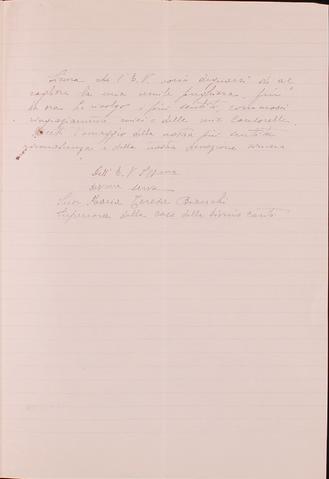 Sicura che l'E. V. vorrà degnarsi di ac
cogliere la mia umile preghiera, fin
da ora Le rivolgo i più sentiti, commossi
ringraziamenti miei e delle mie consorelle.
Accetti l'omaggio della nostra più sentita
riconoscenza e della nostra devozione
Dell' E. V.
devma serva
Suor Maria Teresa Bianchi
Superiora della casa della divina carità